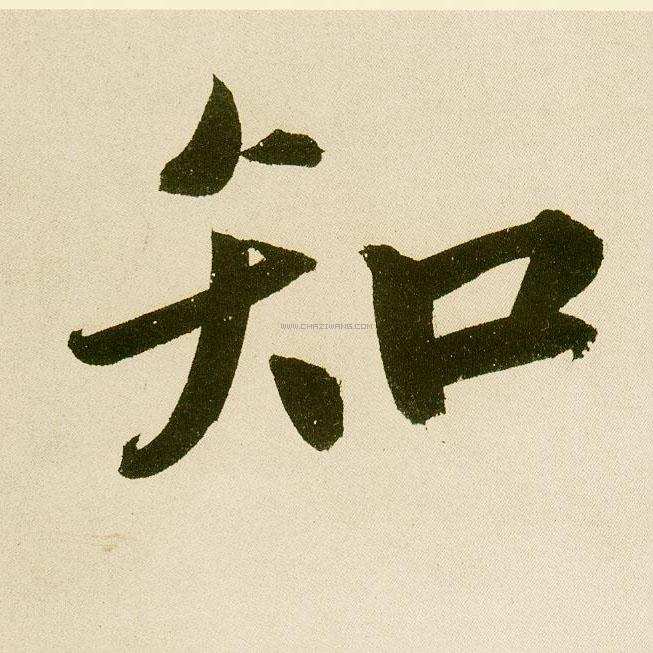 知
WWW.CHAZIWANG.COM